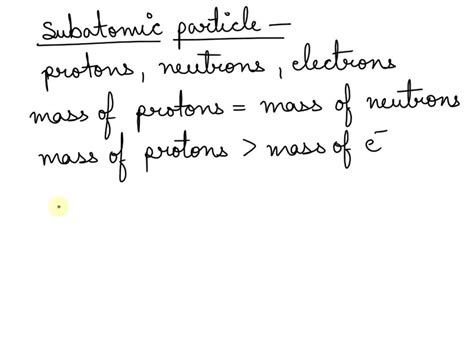 Subatomic particle -
protons, neutrons, electrons
mass of protons = mass of neutrons
mass of protons > mass of e⁻